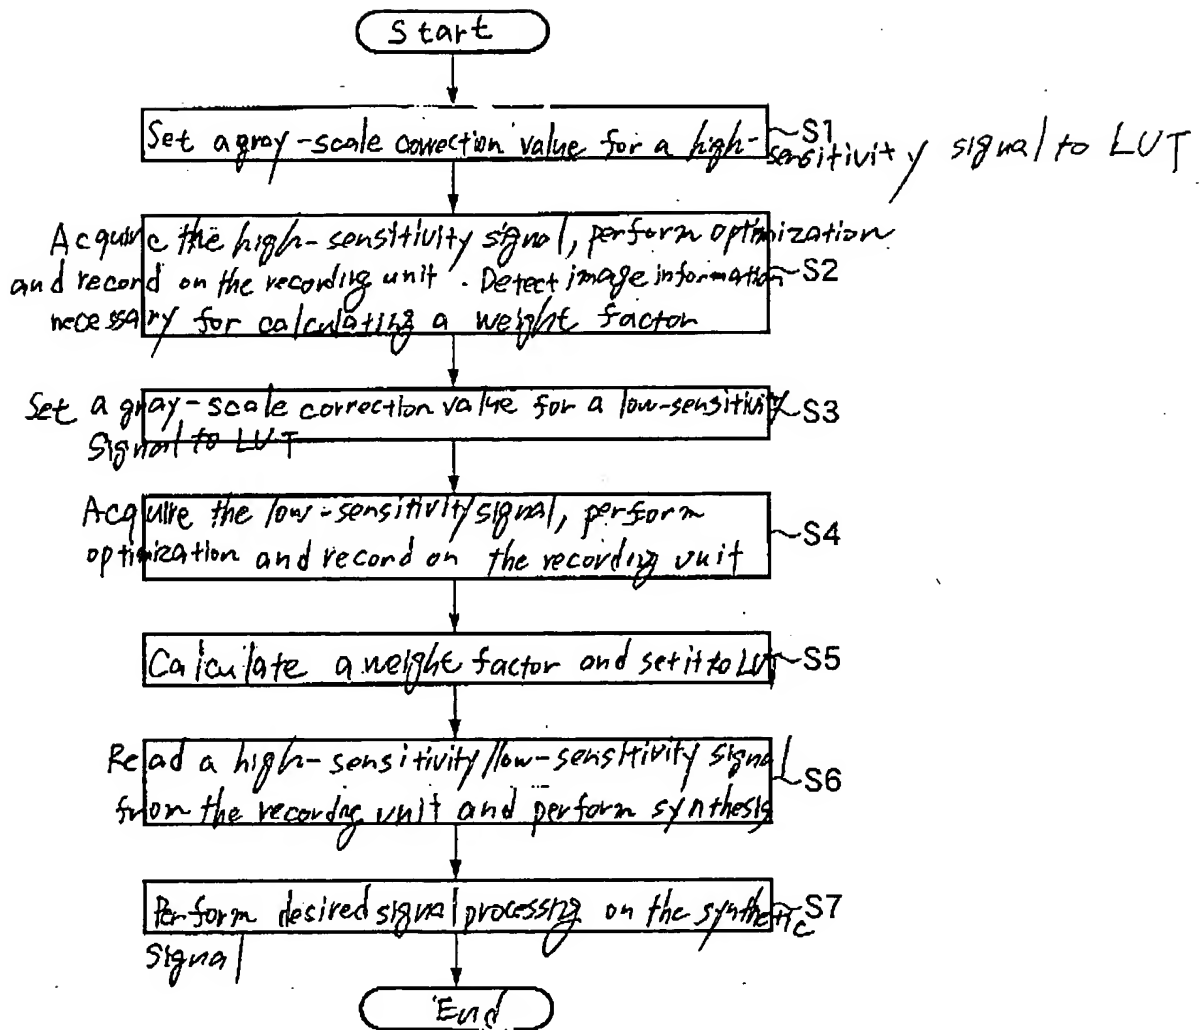 Start
Set a gray-scale correction value for a high-sensitivity signal to LUT
S1
Acquire the high-sensitivity signal, perform optimization
and record on the recording unit. Detect image information
necessary for calculating a weight factor
S2
Set a gray-scale correction value for a low-sensitivity
signal to LUT
S3
Acquire the low-sensitivity signal, perform
optimization and record on the recording unit
S4
Calculate a weight factor and set it to LUT
S5
Read a high-sensitivity/low-sensitivity signal
from the recording unit and perform synthesis
S6
Perform desired signal processing on the synthetic
signal
S7
End